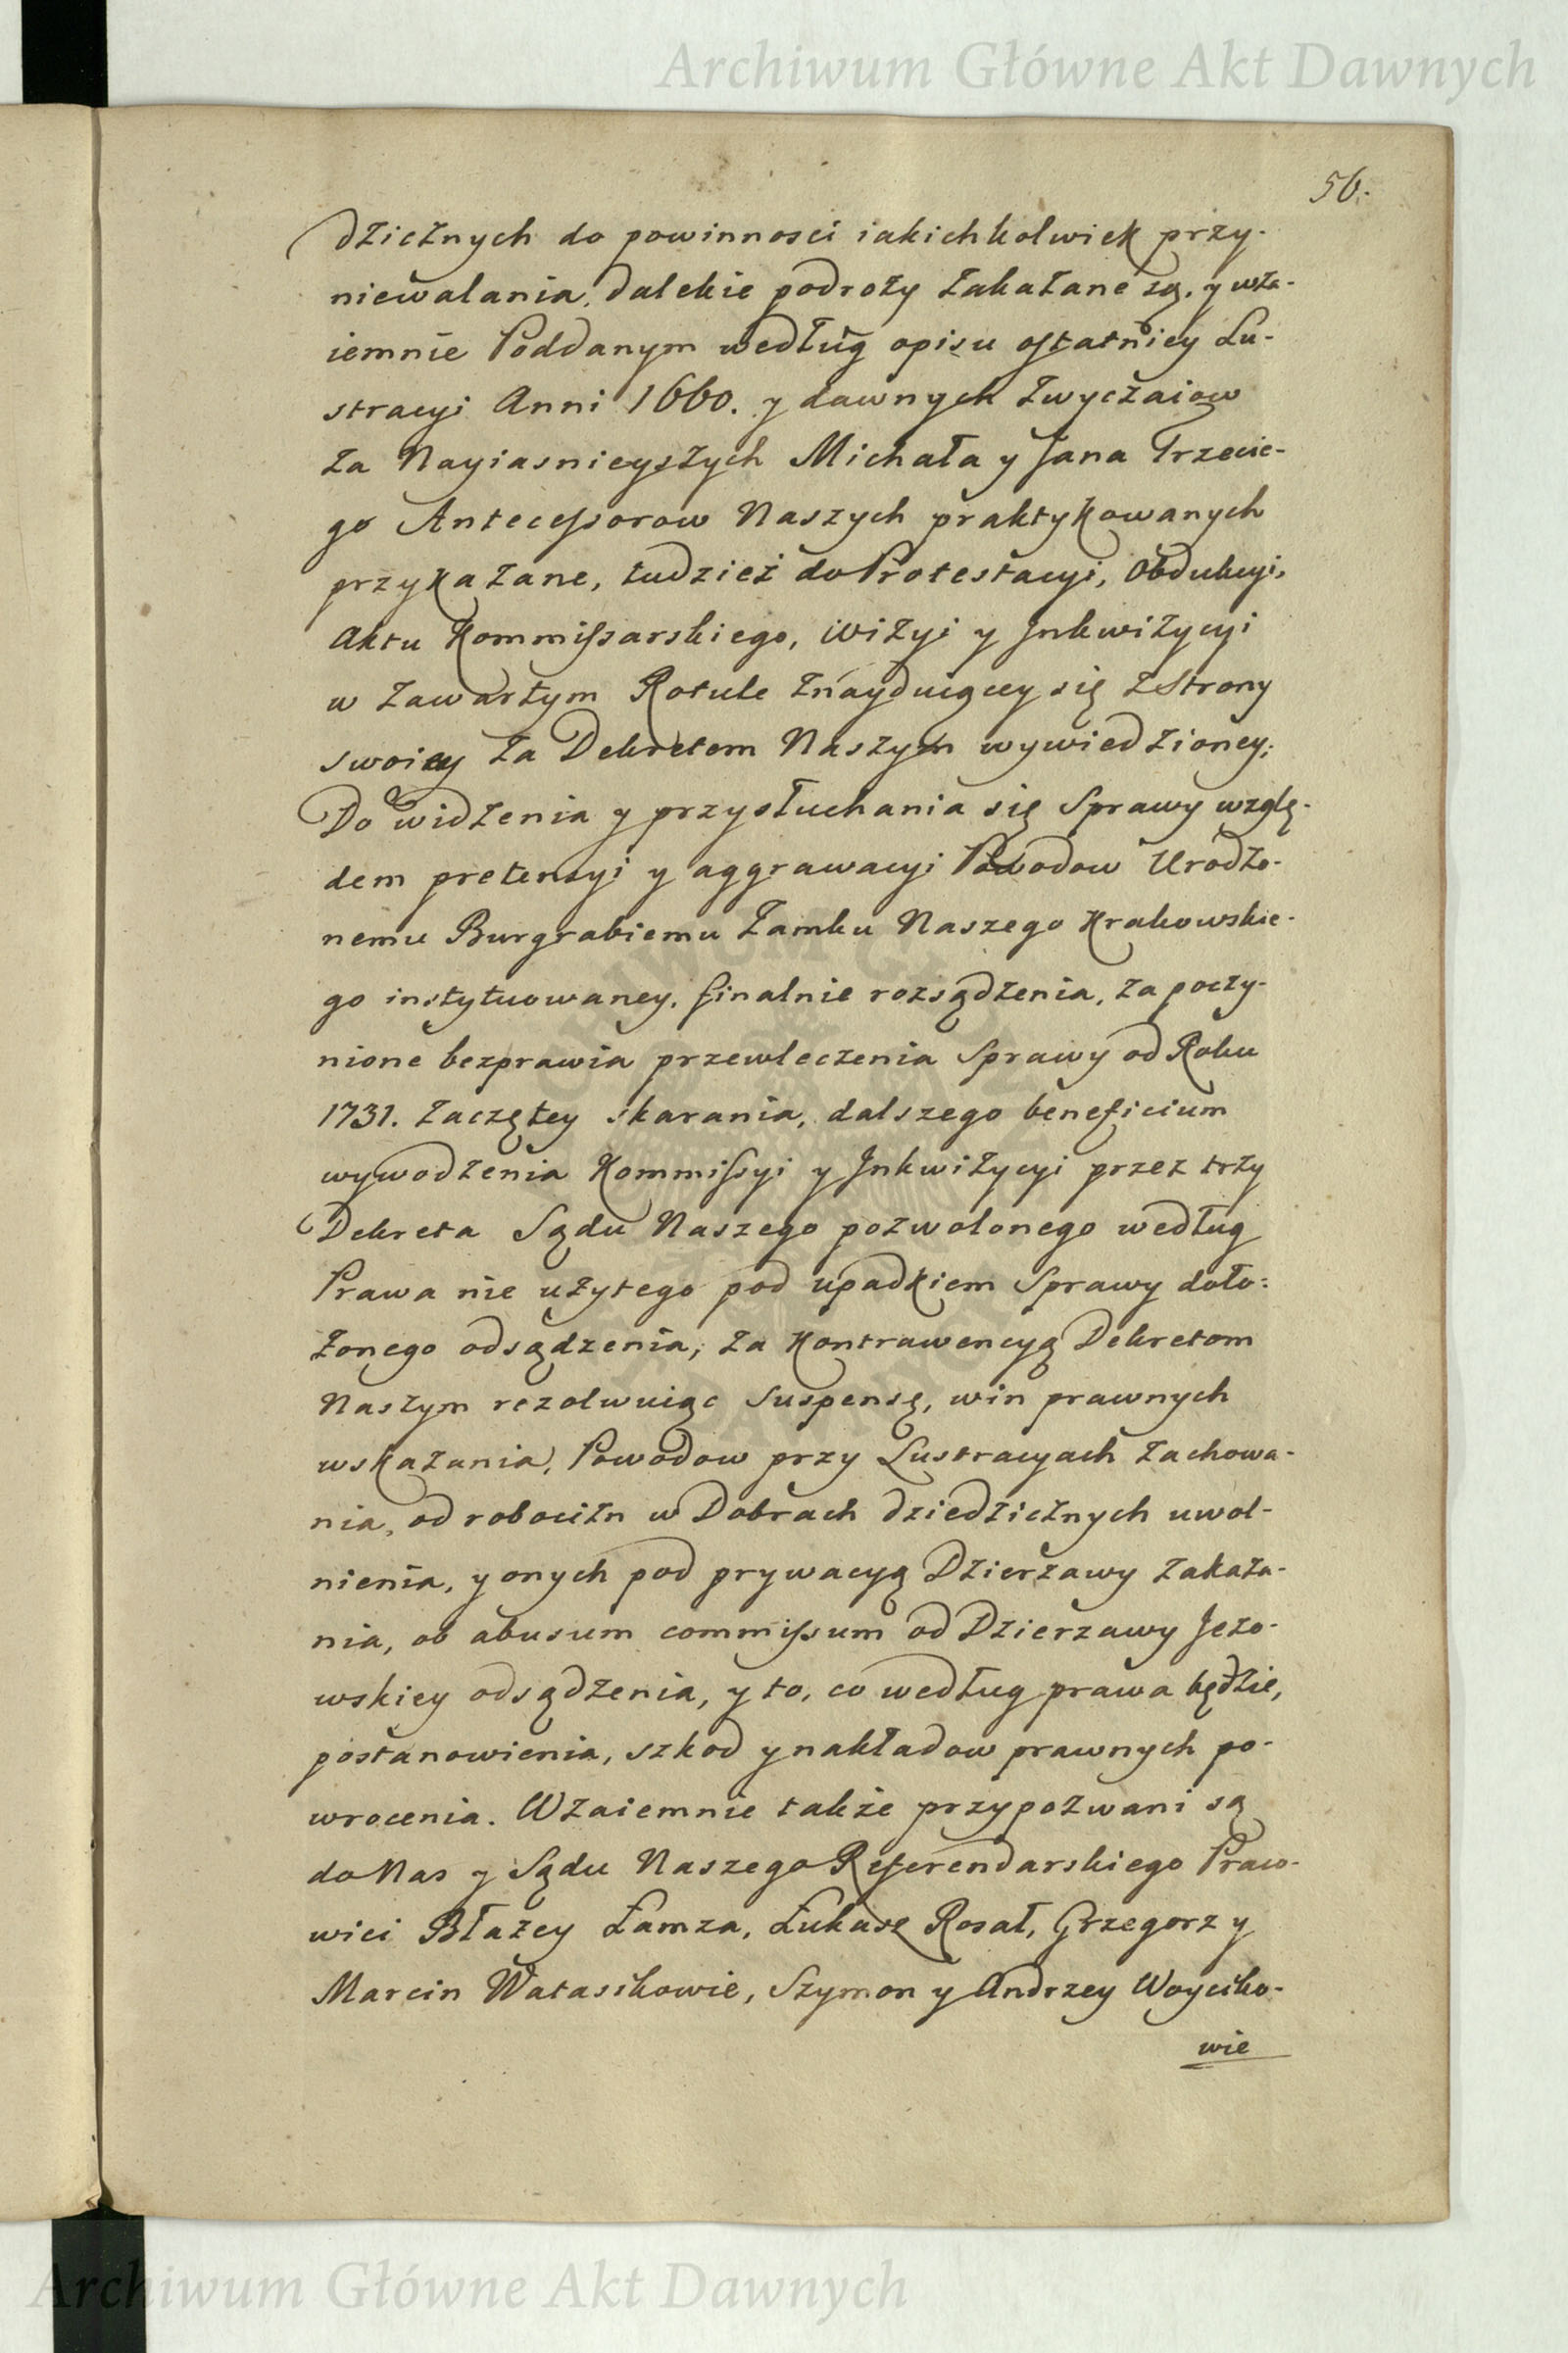 Archiwum Główne Akt Dawnych
56.
dzicznych do powinnosci iakichkolwiek przy-
niewalania, dalekie podroży zakazane są, y wza-
iemnie Poddanym według opisu ostatniey Lu-
stracyi Anni 1660. y dawnych zwyczaiow
za Nayiasnieyszych Michała y Jana Trzecie-
go Antecessorow Naszych praktykowanych
przykazane, tudzież do Protestacyi, Obdukcyi,
Aktu Kommissarskiego, Wizyi y Inkwizycyi
w zawartym Rotule znayduiącey się z Strony
swoiey za Dekretem Naszym wywiedzioney;
Do widzenia y przysłuchania się Sprawy wzglę-
dem pretensyi y aggrawacyi Powodow Urodzo-
nemu Burgrabiemu Zamku Naszego Krakowskie-
go instytuowaney, finalnie rozsądzenia, za poczy-
nione bezprawia przewleczenia Sprawy od Roku
1731. zaczętey skarania, dalszego beneficium
wywodzenia Kommissyi y Inkwizycyi przez trzy
Dekreta Sądu Naszego pozwolonego według
Prawa nie użytego pod upadkiem Sprawy doło-
żonego odsądzenia, za kontrawencyą Dekretom
Naszym rezolwuiąc Suspensę, win prawnych
wskazania, Powodow przy Lustracyach zachowa-
nia, od robocizn w Dobrach dziedzicznych uwol-
nienia, y onych pod prywacyą Dzierżawy zakaza-
nia, ob abusum commissum od Dzierzawy Jeżo-
wskiey odsądzenia, y to, co według prawa będzie,
postanowienia, szkod y nakładow prawnych po-
wrocenia. Wzaiemnie także przypozwani są
do Nas y Sądu Naszego Referendarskiego Praco-
wici Błażey Łamza, Łukasz Rosał, Grzegorz y
Marcin Watasikowie, Szymon y Andrzey Woyciko-
wie
Archiwum Główne Akt Dawnych